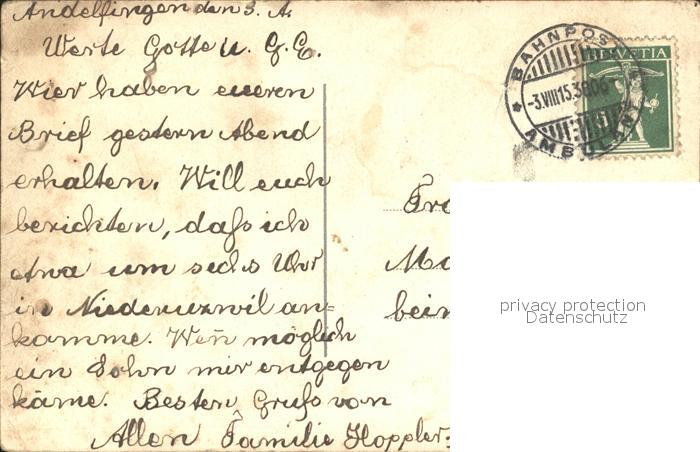 Andelfingen den 3. A.
Werte Gotte u. G. E.
Wier haben eueren
Brief gestern Abend
erhalten. Will euch
berichten, daſs ich
etwa um sechs Uhr
in Niederuzwil an=
komme. Wen̄ möglich
ein Sohn mir entgegen
käme. Besten Gruſs von
Allen Familie Hoppler.
BAHNPOST
-3.VIII.15.3
AMBULANT
HELVETIA
privacy protection
Datenschutz